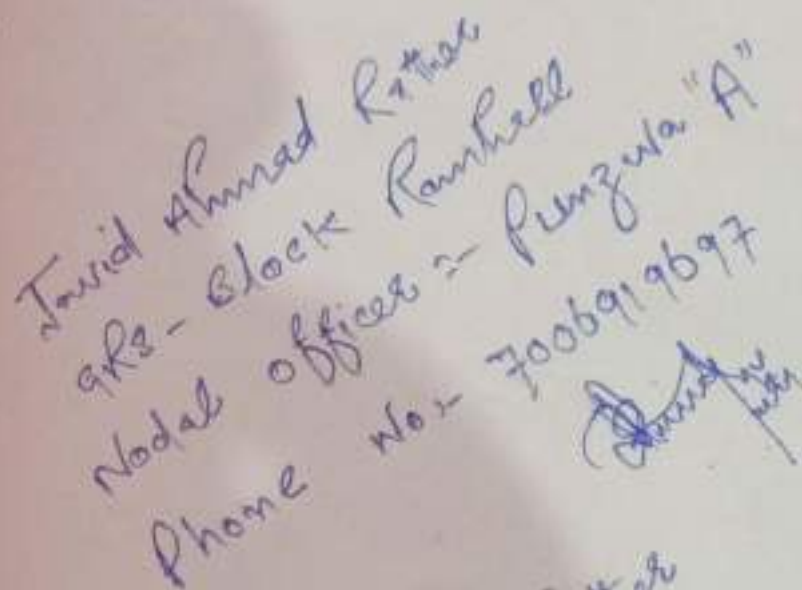 Javid Ahmad Rather
GRS - Block Ramhall
Nodal officer :- Punzwa "A"
Phone No:- 7006919697